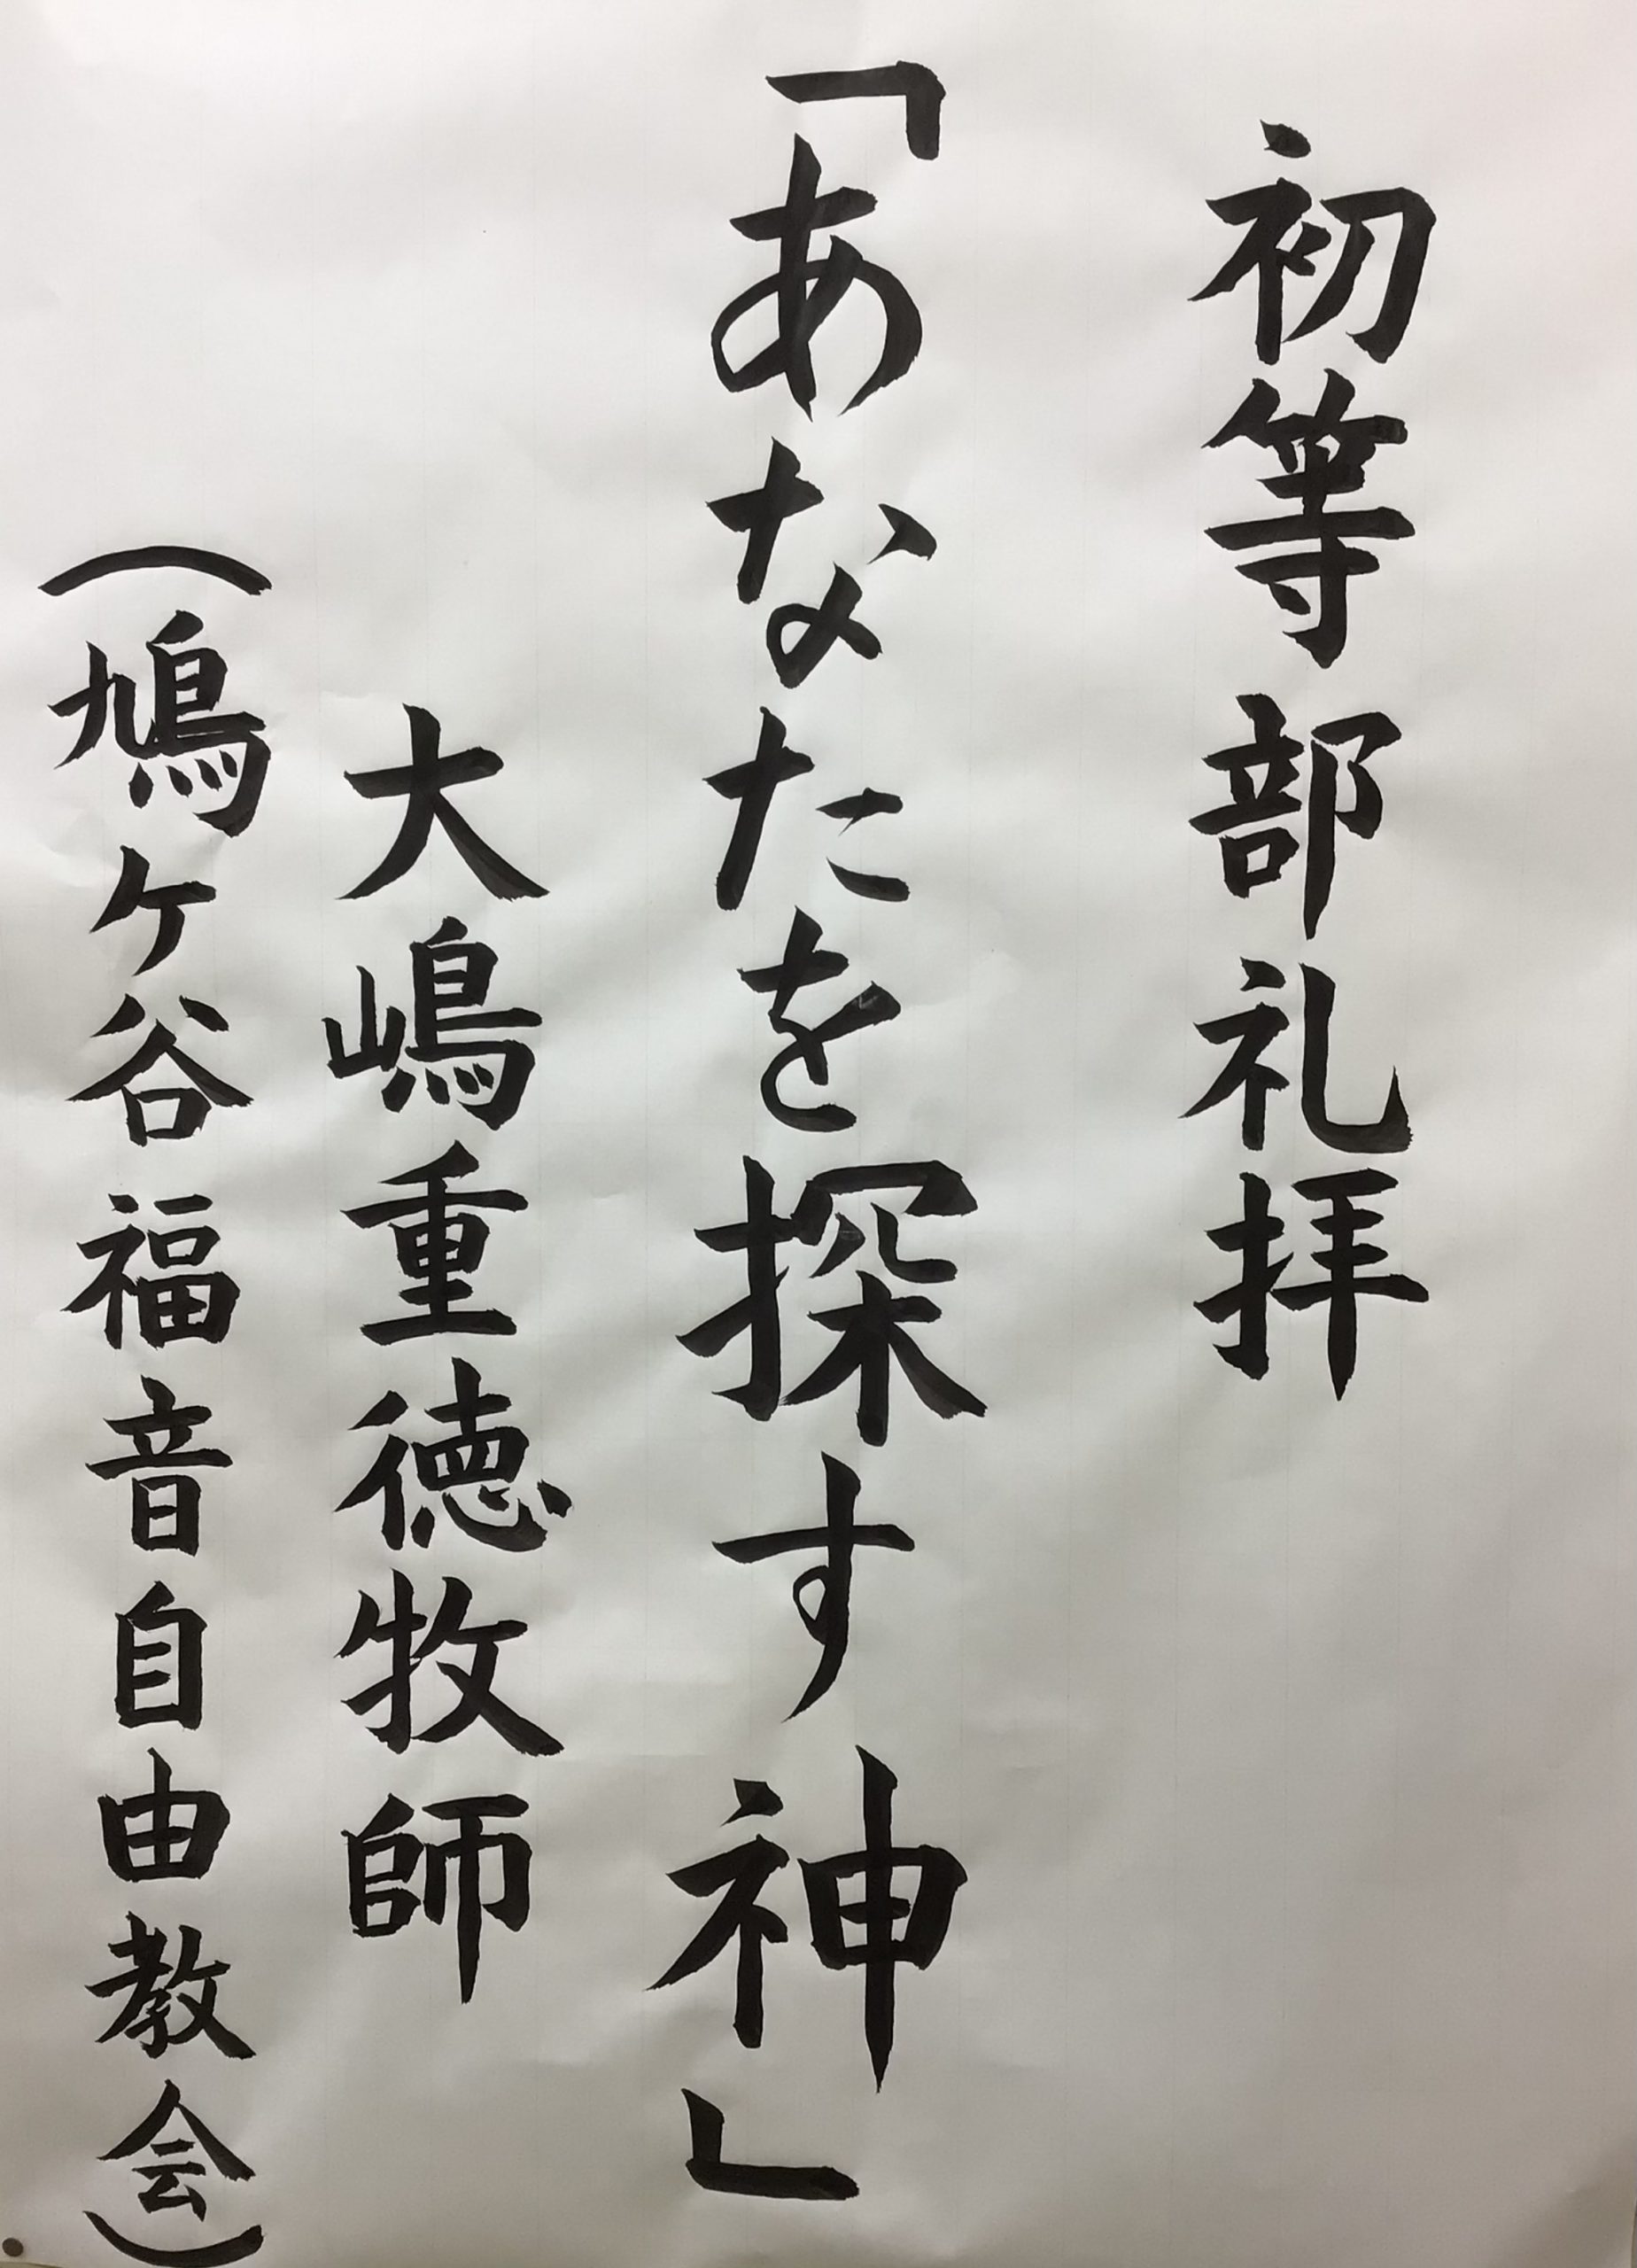 初等部礼拝
「あなたを探す神」
大嶋重徳牧師
（鳩ケ谷福音自由教会）